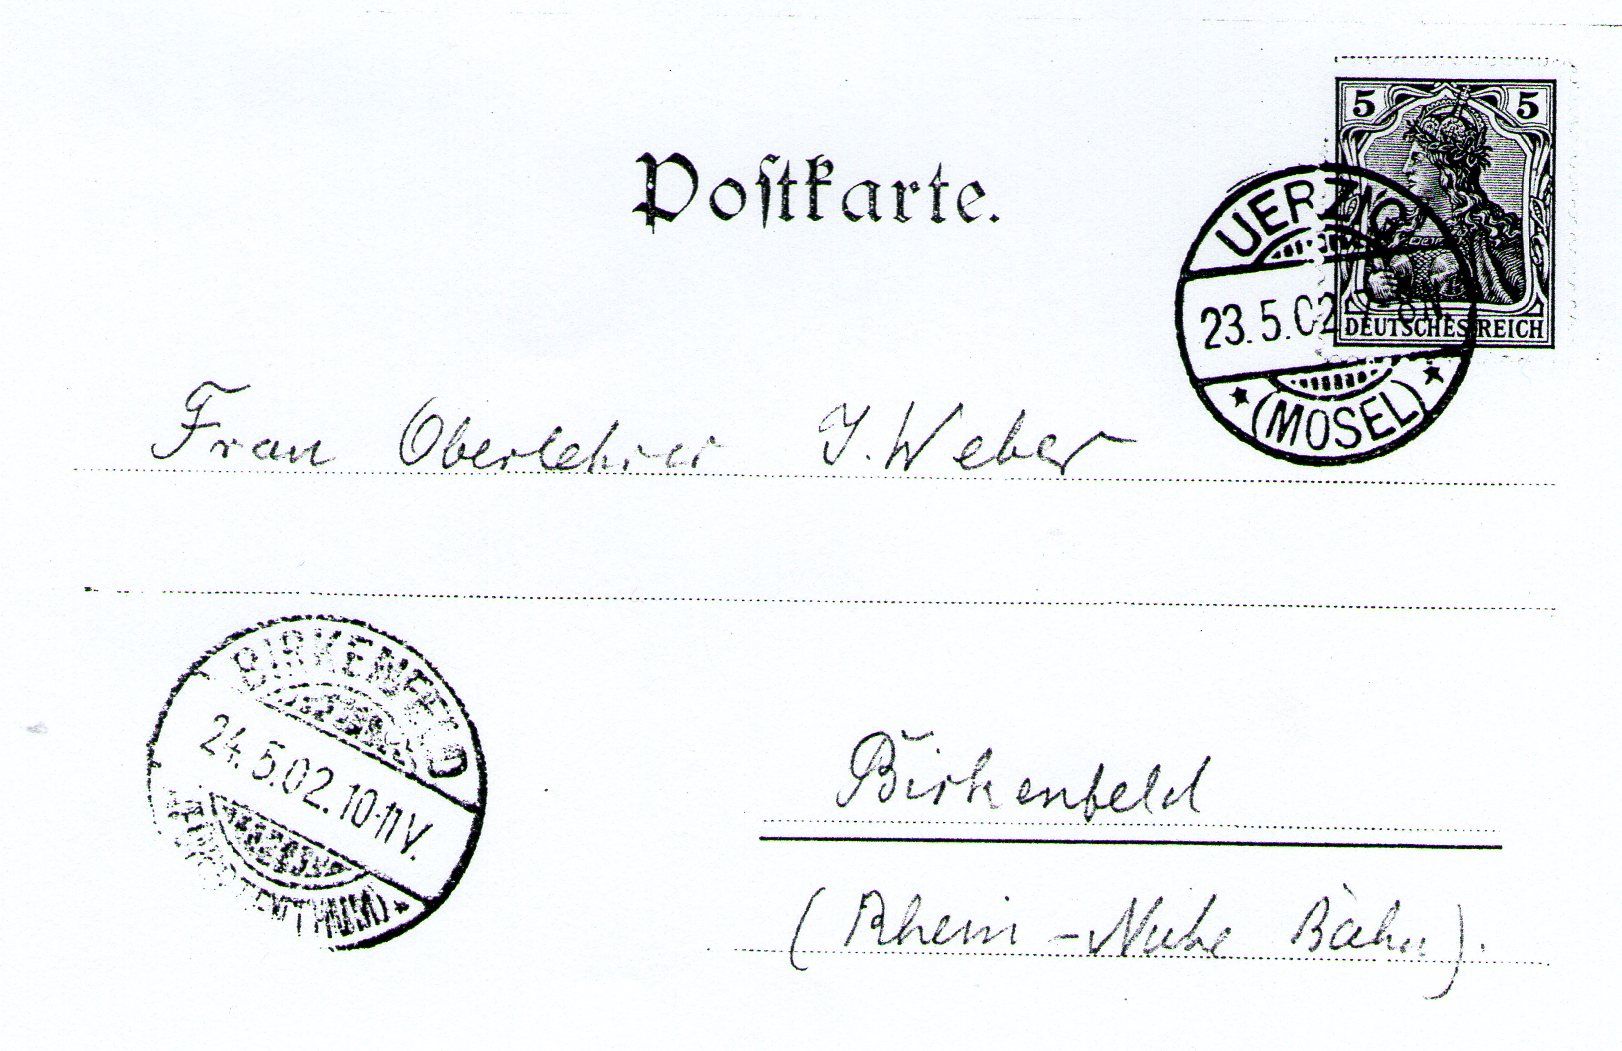 5 5
Poſtkarte.
UERZIG
23.5.02
DEUTSCHES REICH
* (MOSEL) *
Frau Oberlehrer J. Weber
BIRKENFELD
24.5.02.10-11V.
Birkenfeld
(Rhein-Nahe Bahn).